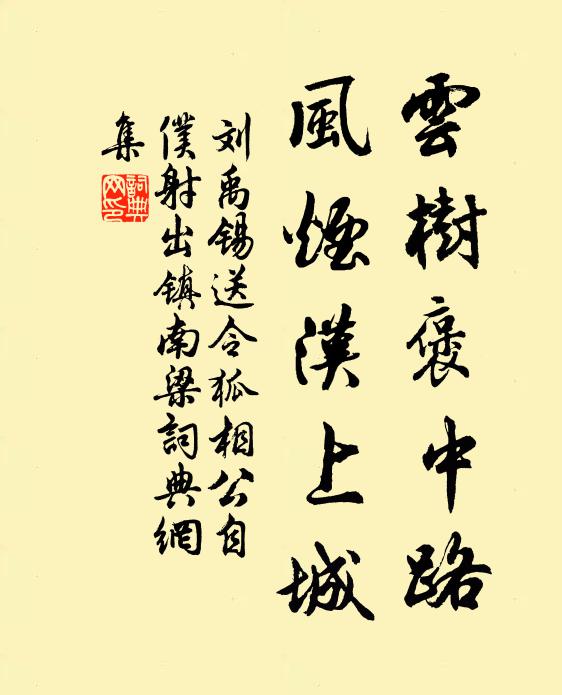 雲樹褒中路
風煙漢上城
刘禹锡送令狐相公自
僕射出镇南梁詞典網
集
詞典
网印